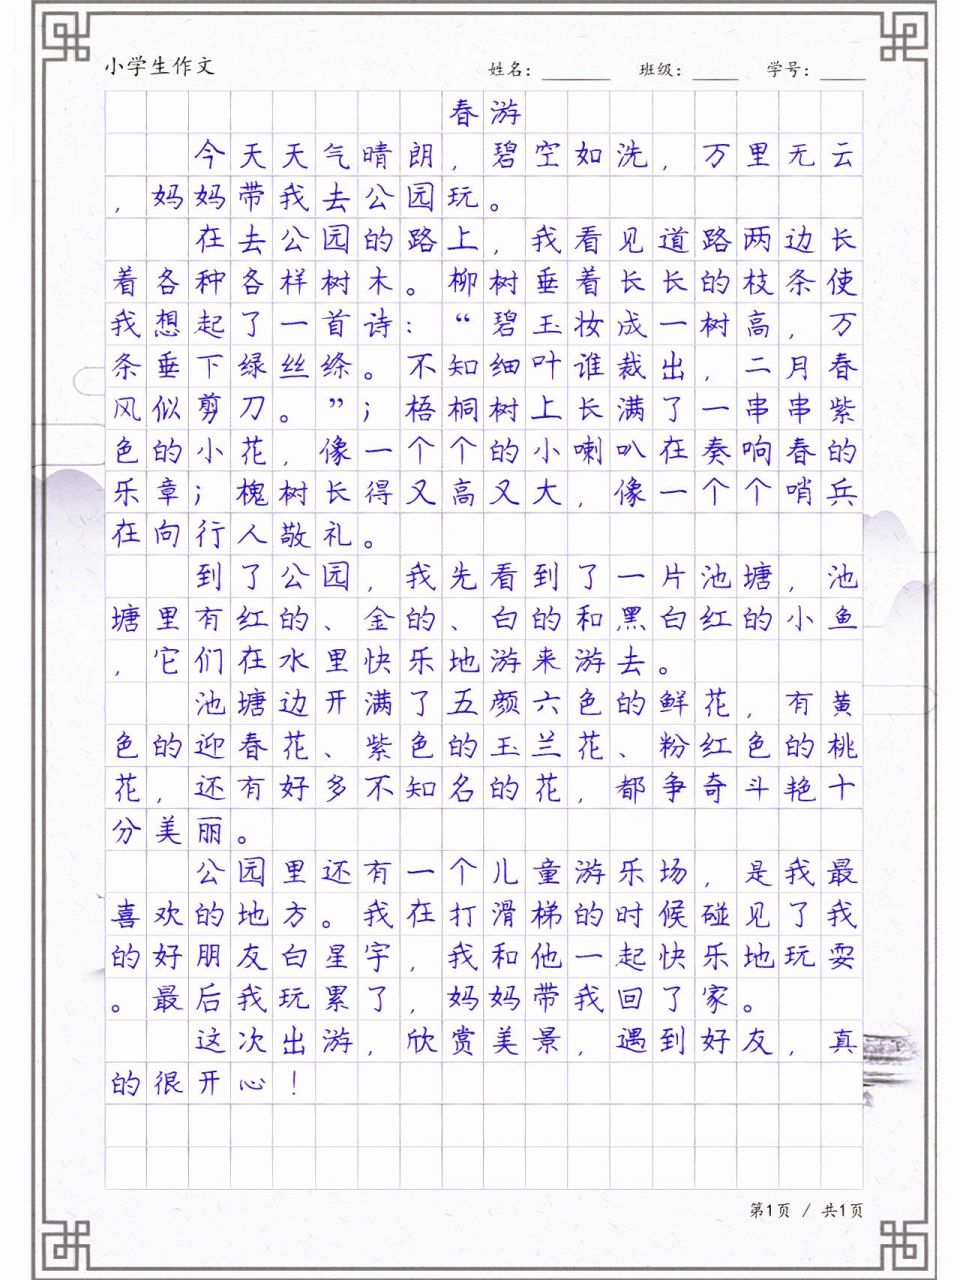 小学生作文 姓名：______ 班级：____ 学号：____
春游
今天天气晴朗，碧空如洗，万里无云
，妈妈带我去公园玩。
在去公园的路上，我看见道路两边长
着各种各样树木。柳树垂着长长的枝条使
我想起了一首诗：“碧玉妆成一树高，万
条垂下绿丝绦。不知细叶谁裁出，二月春
风似剪刀。”；梧桐树上长满了一串串紫
色的小花，像一个个的小喇叭在奏响春的
乐章；槐树长得又高又大，像一个个哨兵
在向行人敬礼。
到了公园，我先看到了一片池塘，池
塘里有红的、金的、白的和黑白红的小鱼
，它们在水里快乐地游来游去。
池塘边开满了五颜六色的鲜花，有黄
色的迎春花、紫色的玉兰花、粉红色的桃
花，还有好多不知名的花，都争奇斗艳十
分美丽。
公园里还有一个儿童游乐场，是我最
喜欢的地方。我在打滑梯的时候碰见了我
的好朋友白星宇，我和他一起快乐地玩耍
。最后我玩累了，妈妈带我回了家。
这次出游，欣赏美景，遇到好友，真
的很开心！
第1页 / 共1页